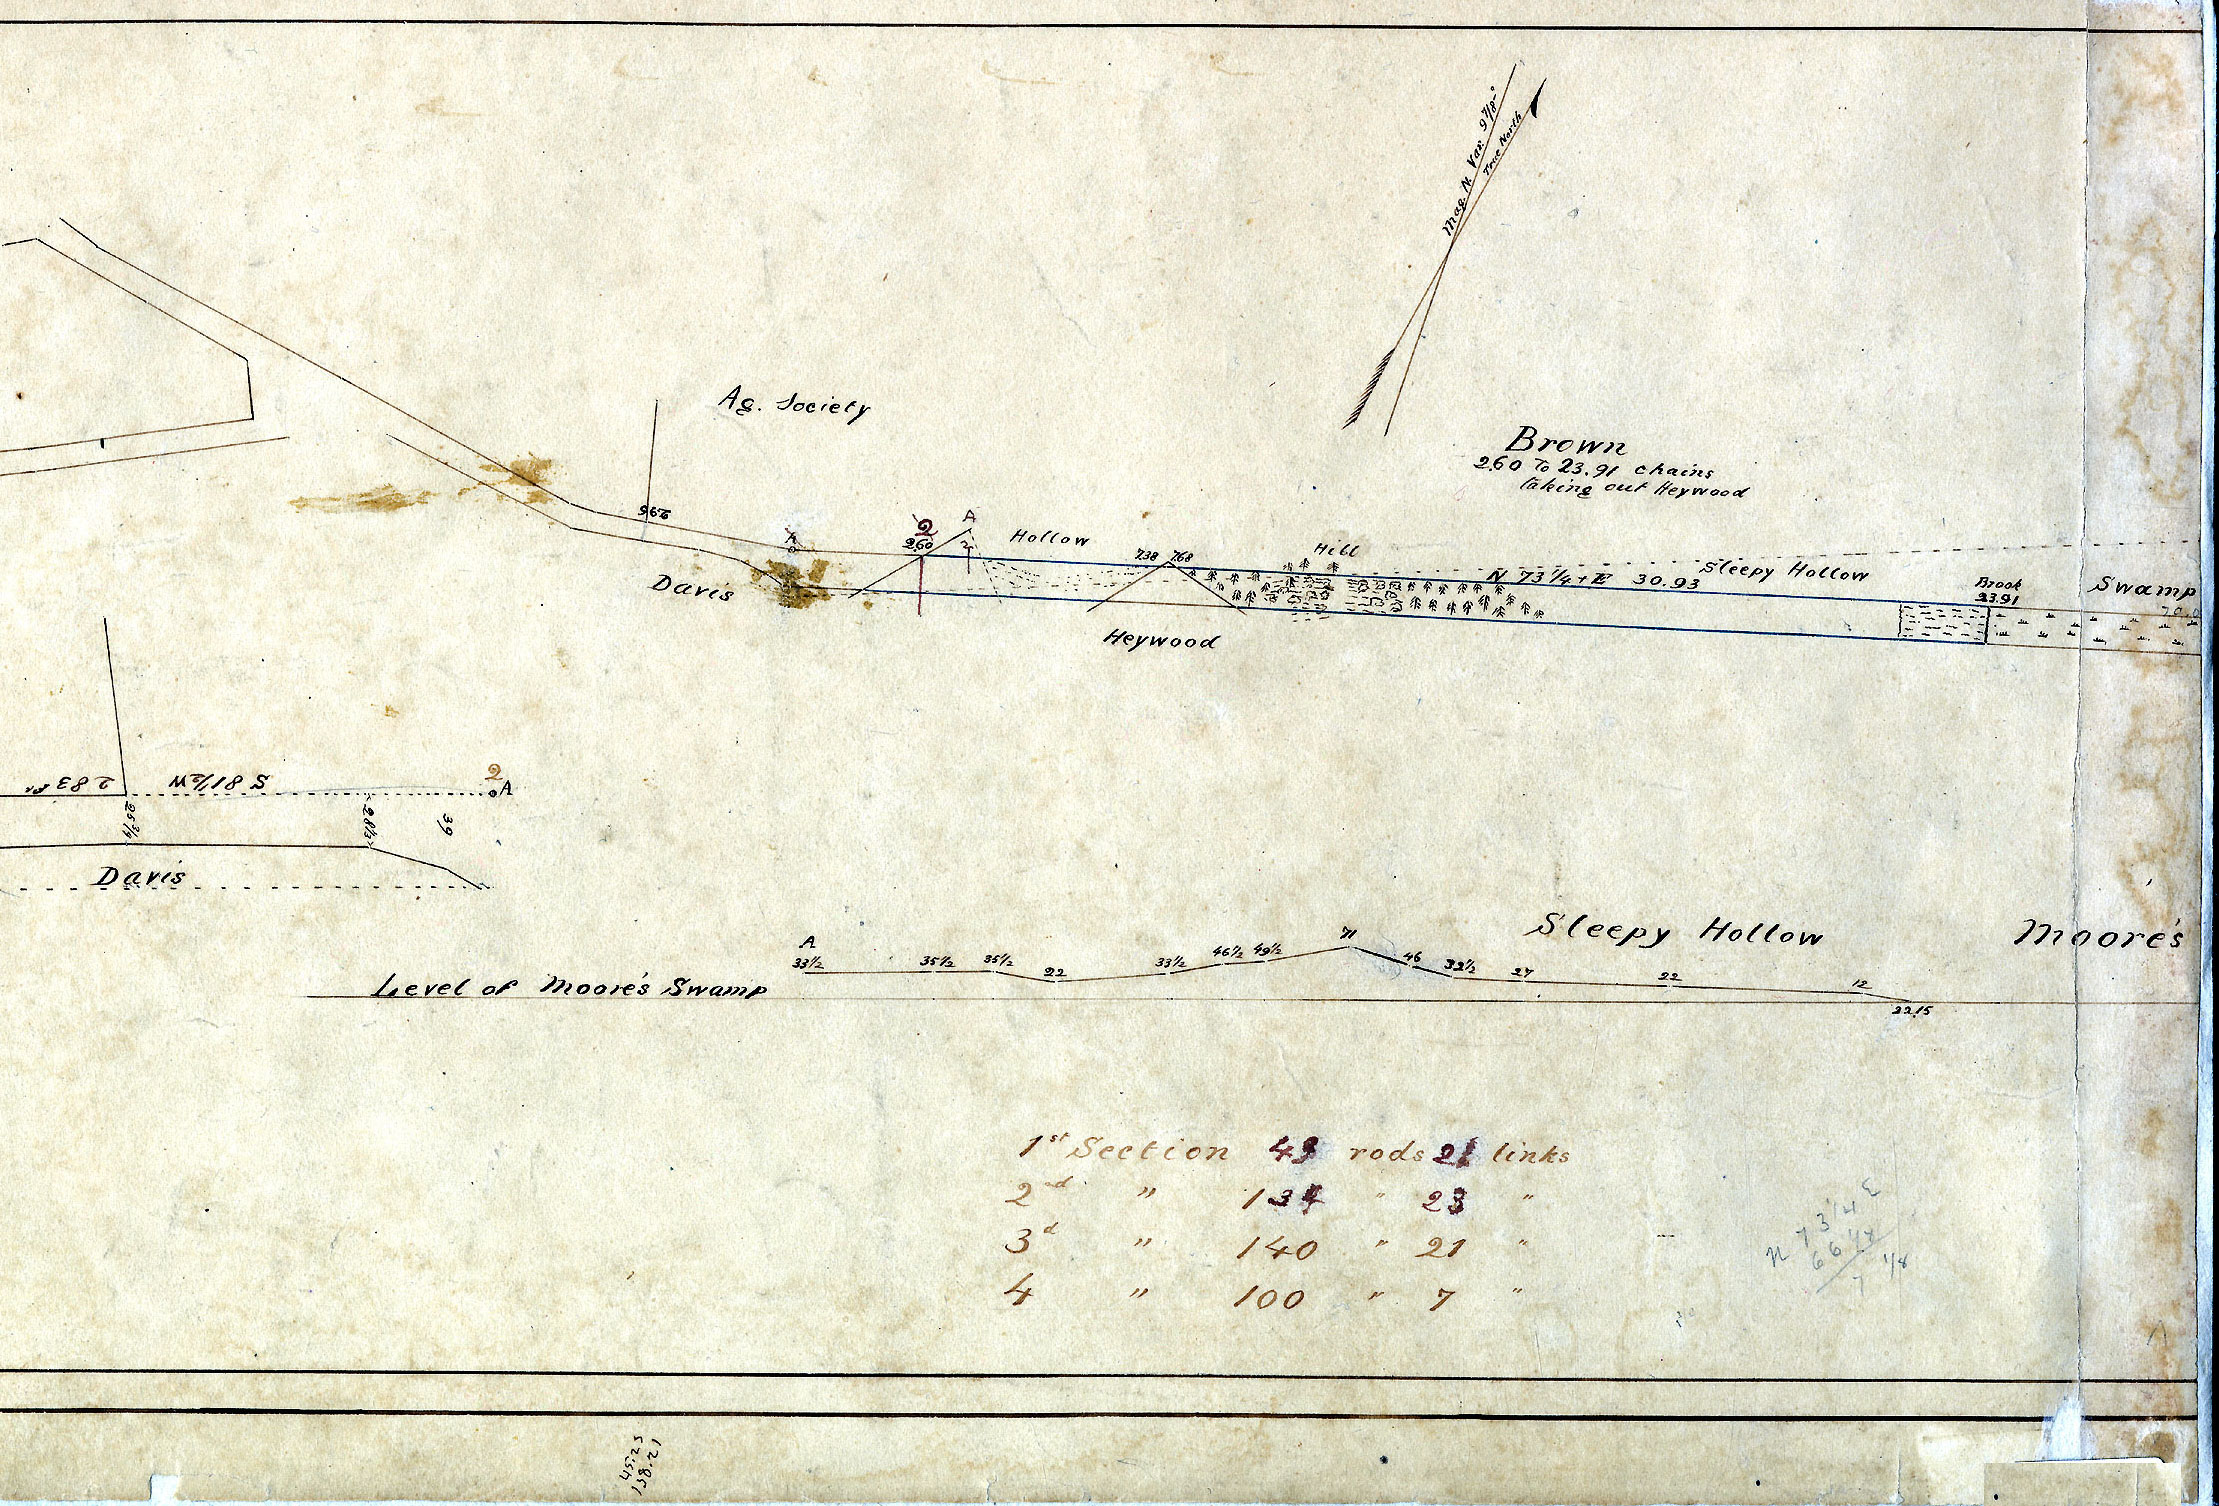 Mag. N. Var. 9 7/8°
True North
Ag. Society
Brown
2.60 To 23.91 chains
taking out Heywood
296
A
2
2.60
A
Hollow
738 768
Hill
Sleepy Hollow
N 73 1/4 E 30.93
Brook
23.91
Swamp
Davis
Heywood
2 83
S 81 1/2 W
2
A
25 3/4
28 1/2
39
Davis
Sleepy Hollow
Moore's
A
33 1/2 35 1/2 35 1/2 22 33 1/2 46 1/2 49 1/2 71 46 32 1/2 27 22 12
22.15
Level of Moore's Swamp
1st Section 49 rods 21 links
2nd " 134 " 23 "
3d " 140 " 21 "
4 " 100 " 7 "
N 73 1/4 E
66 1/4
7 1/8
45.23
138.21